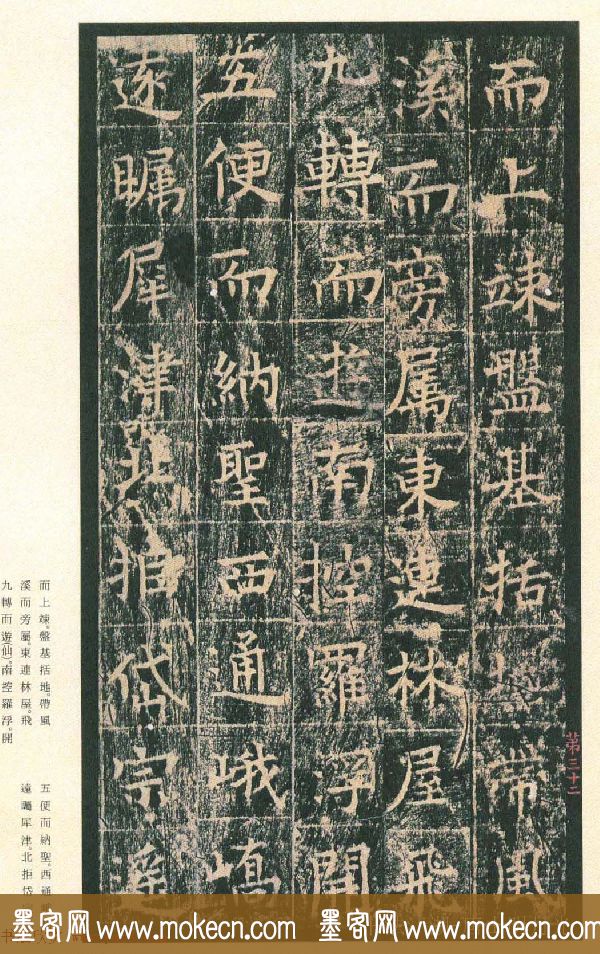 而上竦盤基括地帶風
溪而旁属東連林屋飛
九轉而遊南控羅浮開
五便而納聖西通峨嶠
遠矚犀津北拒岱宗遥
第三十二
而上竦。盤基括地。帶風
溪而旁屬。東連林屋。飛
九轉而遊(仙)。南控羅浮。開
五便而納聖。西通
遠矚犀津。北拒岱
墨客网 www.mokecn.com 墨客网 www.mokecn.com